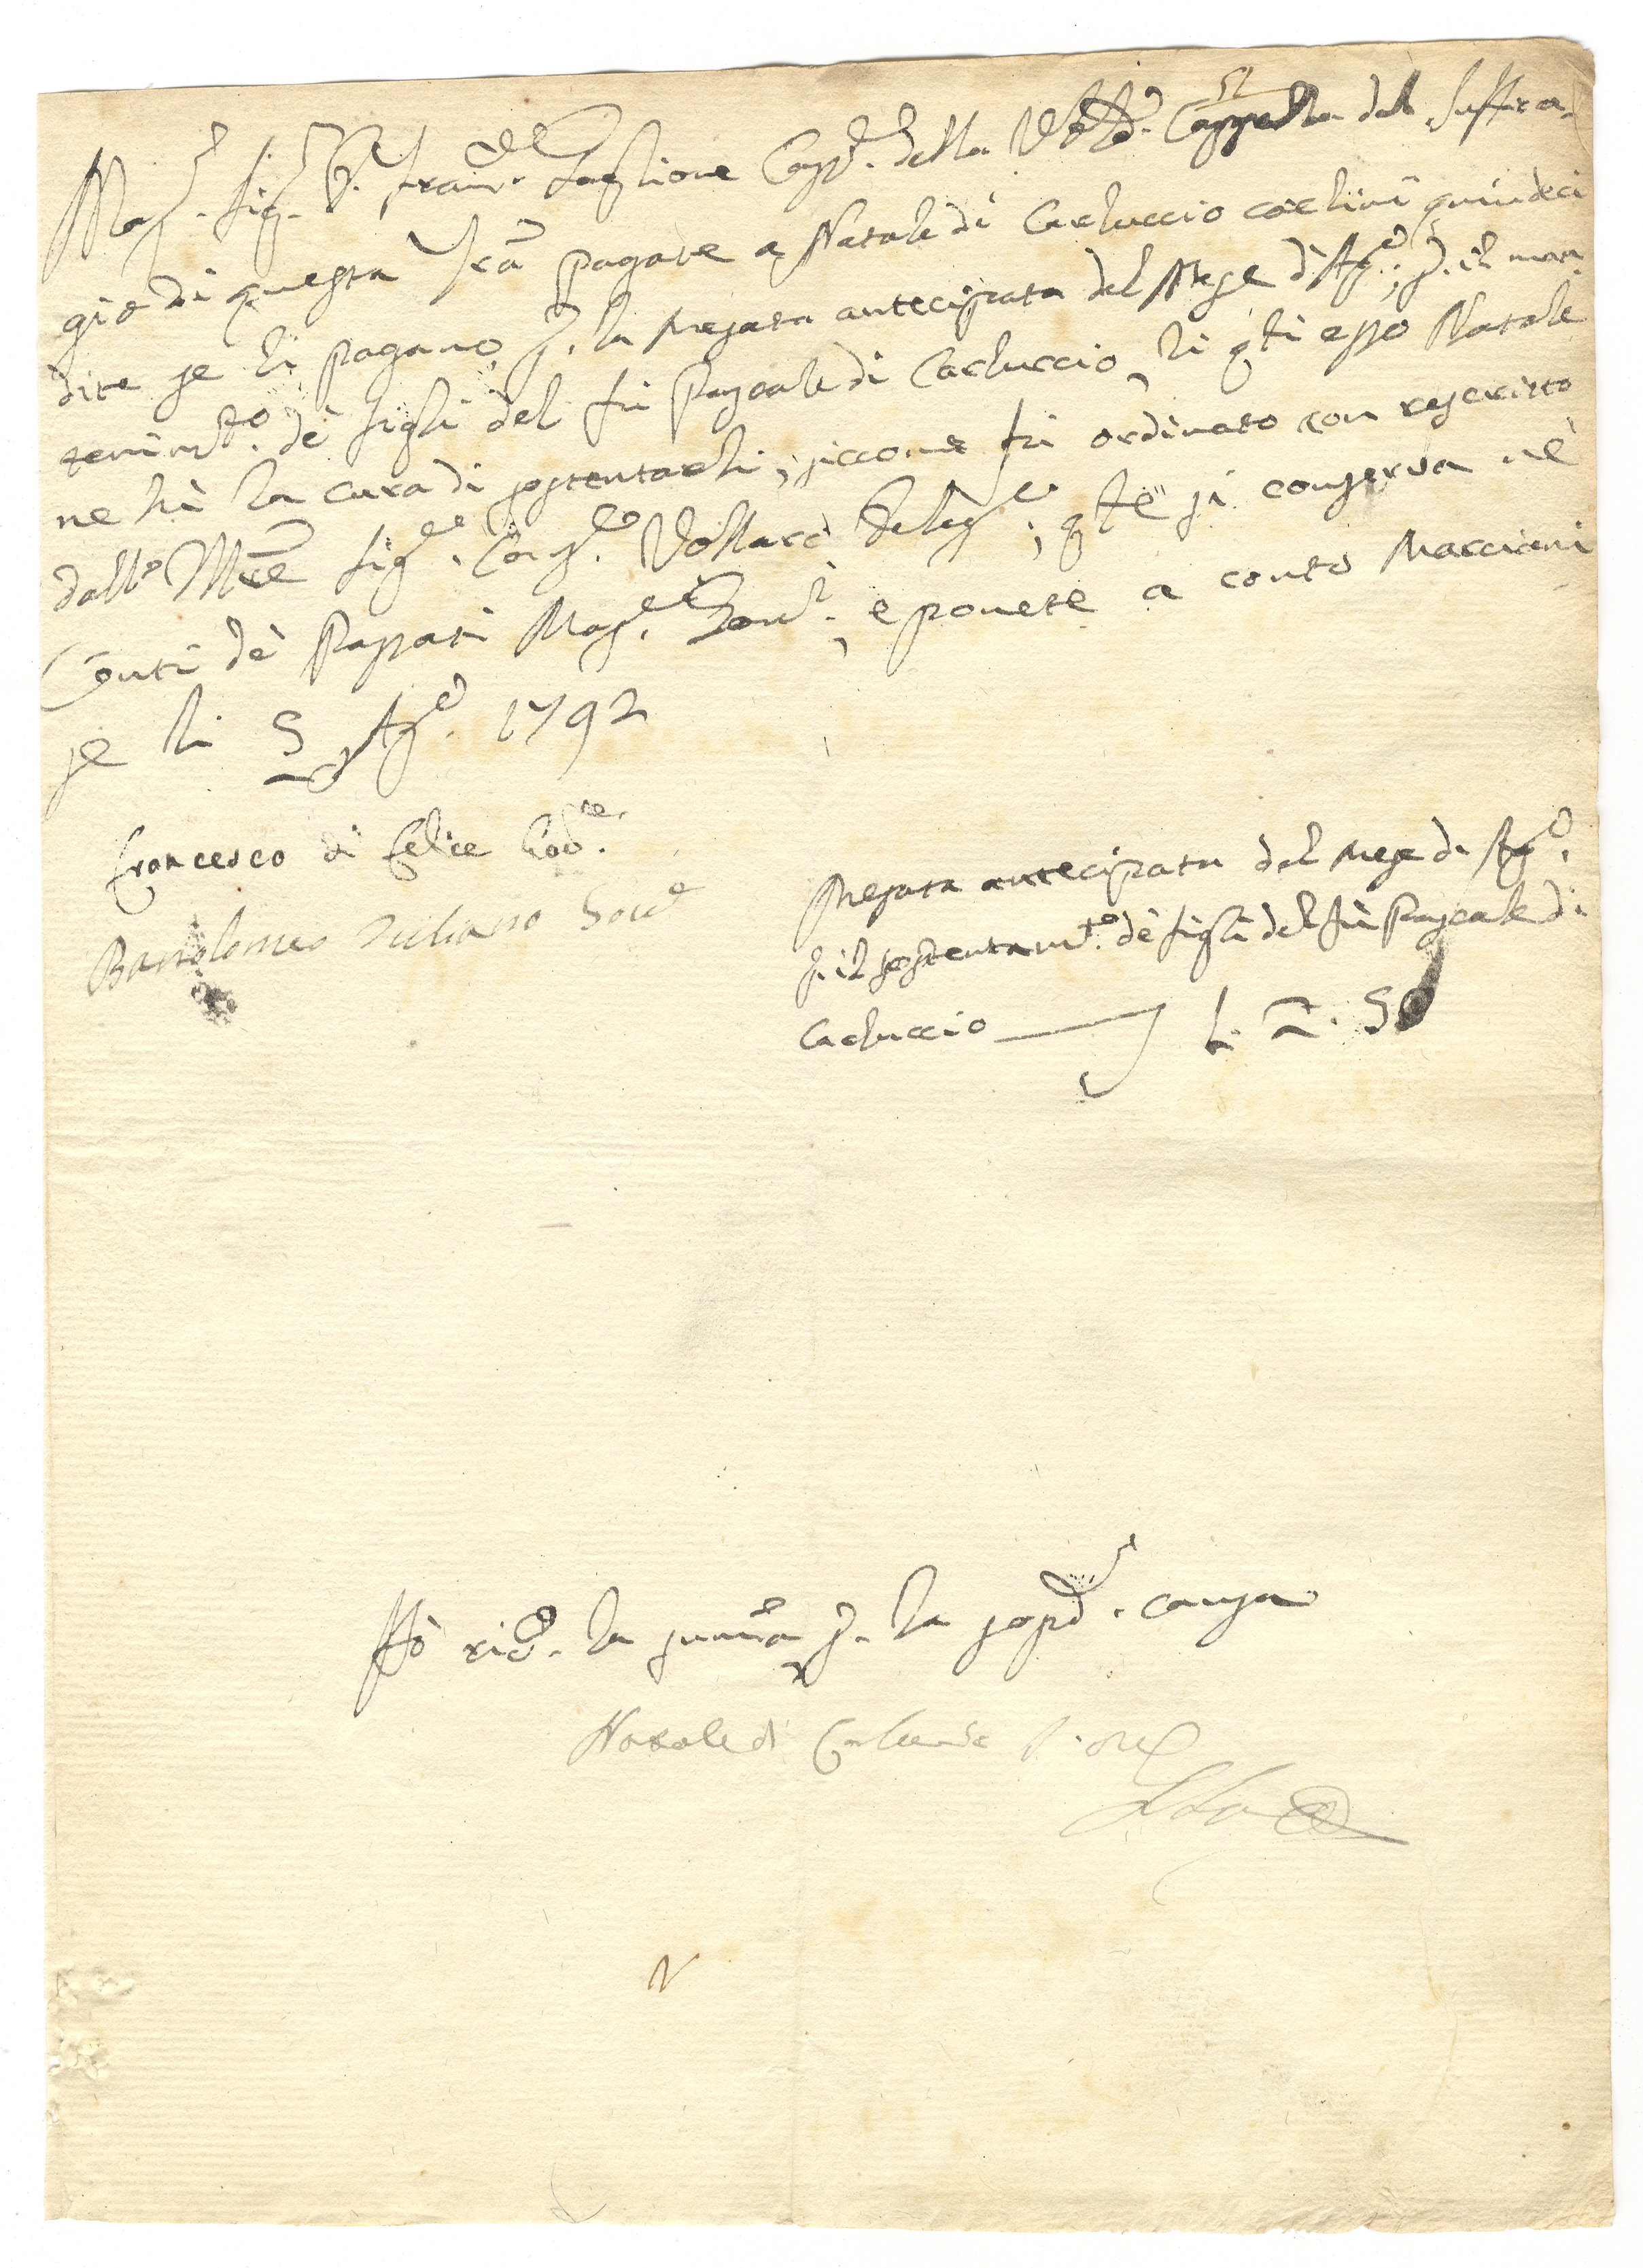 Mag.co Sig.r D. Fran.co Saglione Capp.no della Vble. Cappella del Suffra-
gio di questa Tra pagate a Natale di Carluccio carlini quindeci
dite se li pagano p. la Mesata antecipata del Mese d'Ag.o; p. il man
tenim.to de' figli del fù Pascale di Carluccio, li q.li esso Natale
ne hà la cura di sostentarli, siccome fù ordinato con rescritto
dall'o Sig.re Cons.re Vollaro Deleg.to, q.le si conserva nè
Conti dè Passati Mag.ci Gov.ri, e ponete a conto Marciani
se li 5 Ag.o 1792
Francesco di Felice Gov.re
Bartolomeo Iuliano Gov.e
Mesata antecipata del Mese di Ag.o
p. il sostentam.to dè figli del fù Pascale di
Carluccio L. 1. 50
Hò ric.o la summa p. la sopd.a causa
Natale di Carluccio